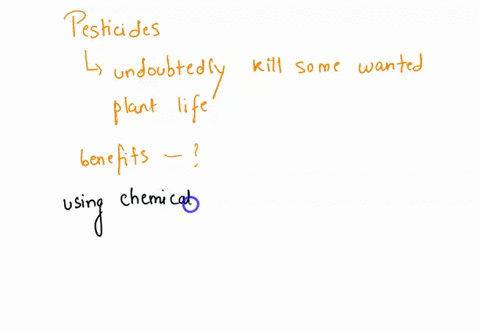 Pesticides
↳ undoubtedly kill some wanted
plant life
benefits - ?
using chemical